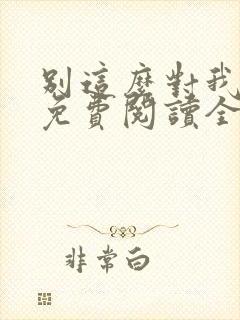 別這麼對我
免費閱讀全
非常白